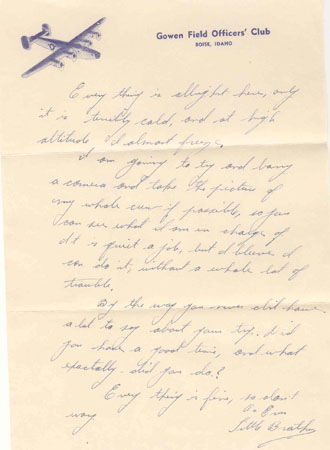 Gowen Field Officers' Club
BOISE, IDAHO
Every thing is allright here, only
it is terribly cold, and at high
altitude, I almost freeze.
I am going to try and barry
a camera and take the picture of
my whole crew if possible, so you
can see what I am in charge of
It is quiet a job, but I bleive I
can do it, without a whole lot of
trouble.
By the way you never did have
a lot to say about your trip, did
you have a good time, and what
exactally did you do?
Every thing is fine, so don't
worry
Brother